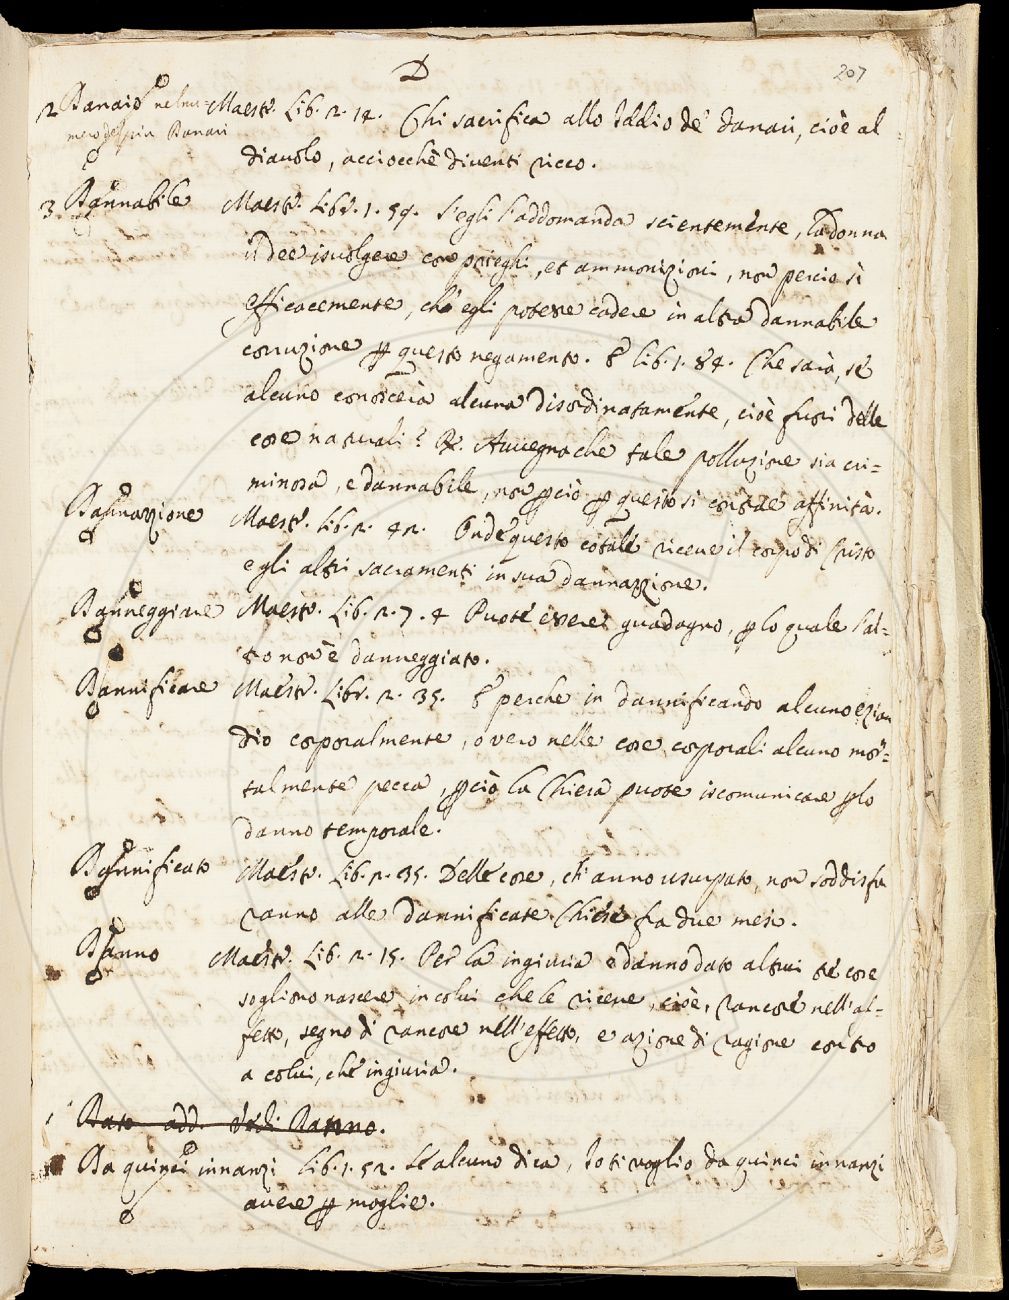 D
207
2 Danaio nel nu= Maestr. Lib. 2. 14. Chi sacrifica allo Iddio de' danari, cioè al
mero del più Danari
diavolo, acciocchè diventi ricco.
3 Dannabile Maestr. Libr. 1. 59. S'egli l'addomanda scientemente, la donna
il dee isvolgere con prieghi, et ammonizioni, non perciò sì
efficacemente, che egli potesse cadere in altra dannabile
corruzione p questo negamento. E lib. 1. 84. Che sarà, se
alcuno conoscerà alcuna disordinatamente, cioè fuori delle
cose naturali? R. Avvegnache tale polluzione sia cri=
minosa, e dannabile, non pciò p questo si contrae affinità.
Dannazione Maestr. Lib. 2. 42. Onde questo cotale riceve il corpo di Cristo
e gli altri sacramenti in sua dannazione.
Danneggiare Maestr. Lib. 2. 7. 4 Puote essere guadagno, p lo quale l'al=
tro non è danneggiato.
Dannificare Maestr. Libr. 2. 35. E perche in dannificando alcuno ezian
dio corporalmente, overo nelle cose corporali alcuno mor=
talmente pecca, pciò la Chiesa puote iscomunicare p lo
danno temporale.
Dannificato Maestr. Lib. 2. 35. Delle cose, ch'anno usurpato, non soddisfa
ranno alle dannificate Chiese fra due mesi.
Danno Maestr. Lib. 2. 15. Per la ingiuria e danno dato altrui tre cose
sogliono nascere in colui che le riceve, cioè, rancore nell'af=
fetto, segno di rancore nell'effetto, e azione di ragione contro
a colui, che ingiuria.
1 Dato add. Vedi Danno.
Da quinci innanzi Lib. 1. 52. Se alcuno dica, Io ti voglio da quinci innanzi
avere p moglie.